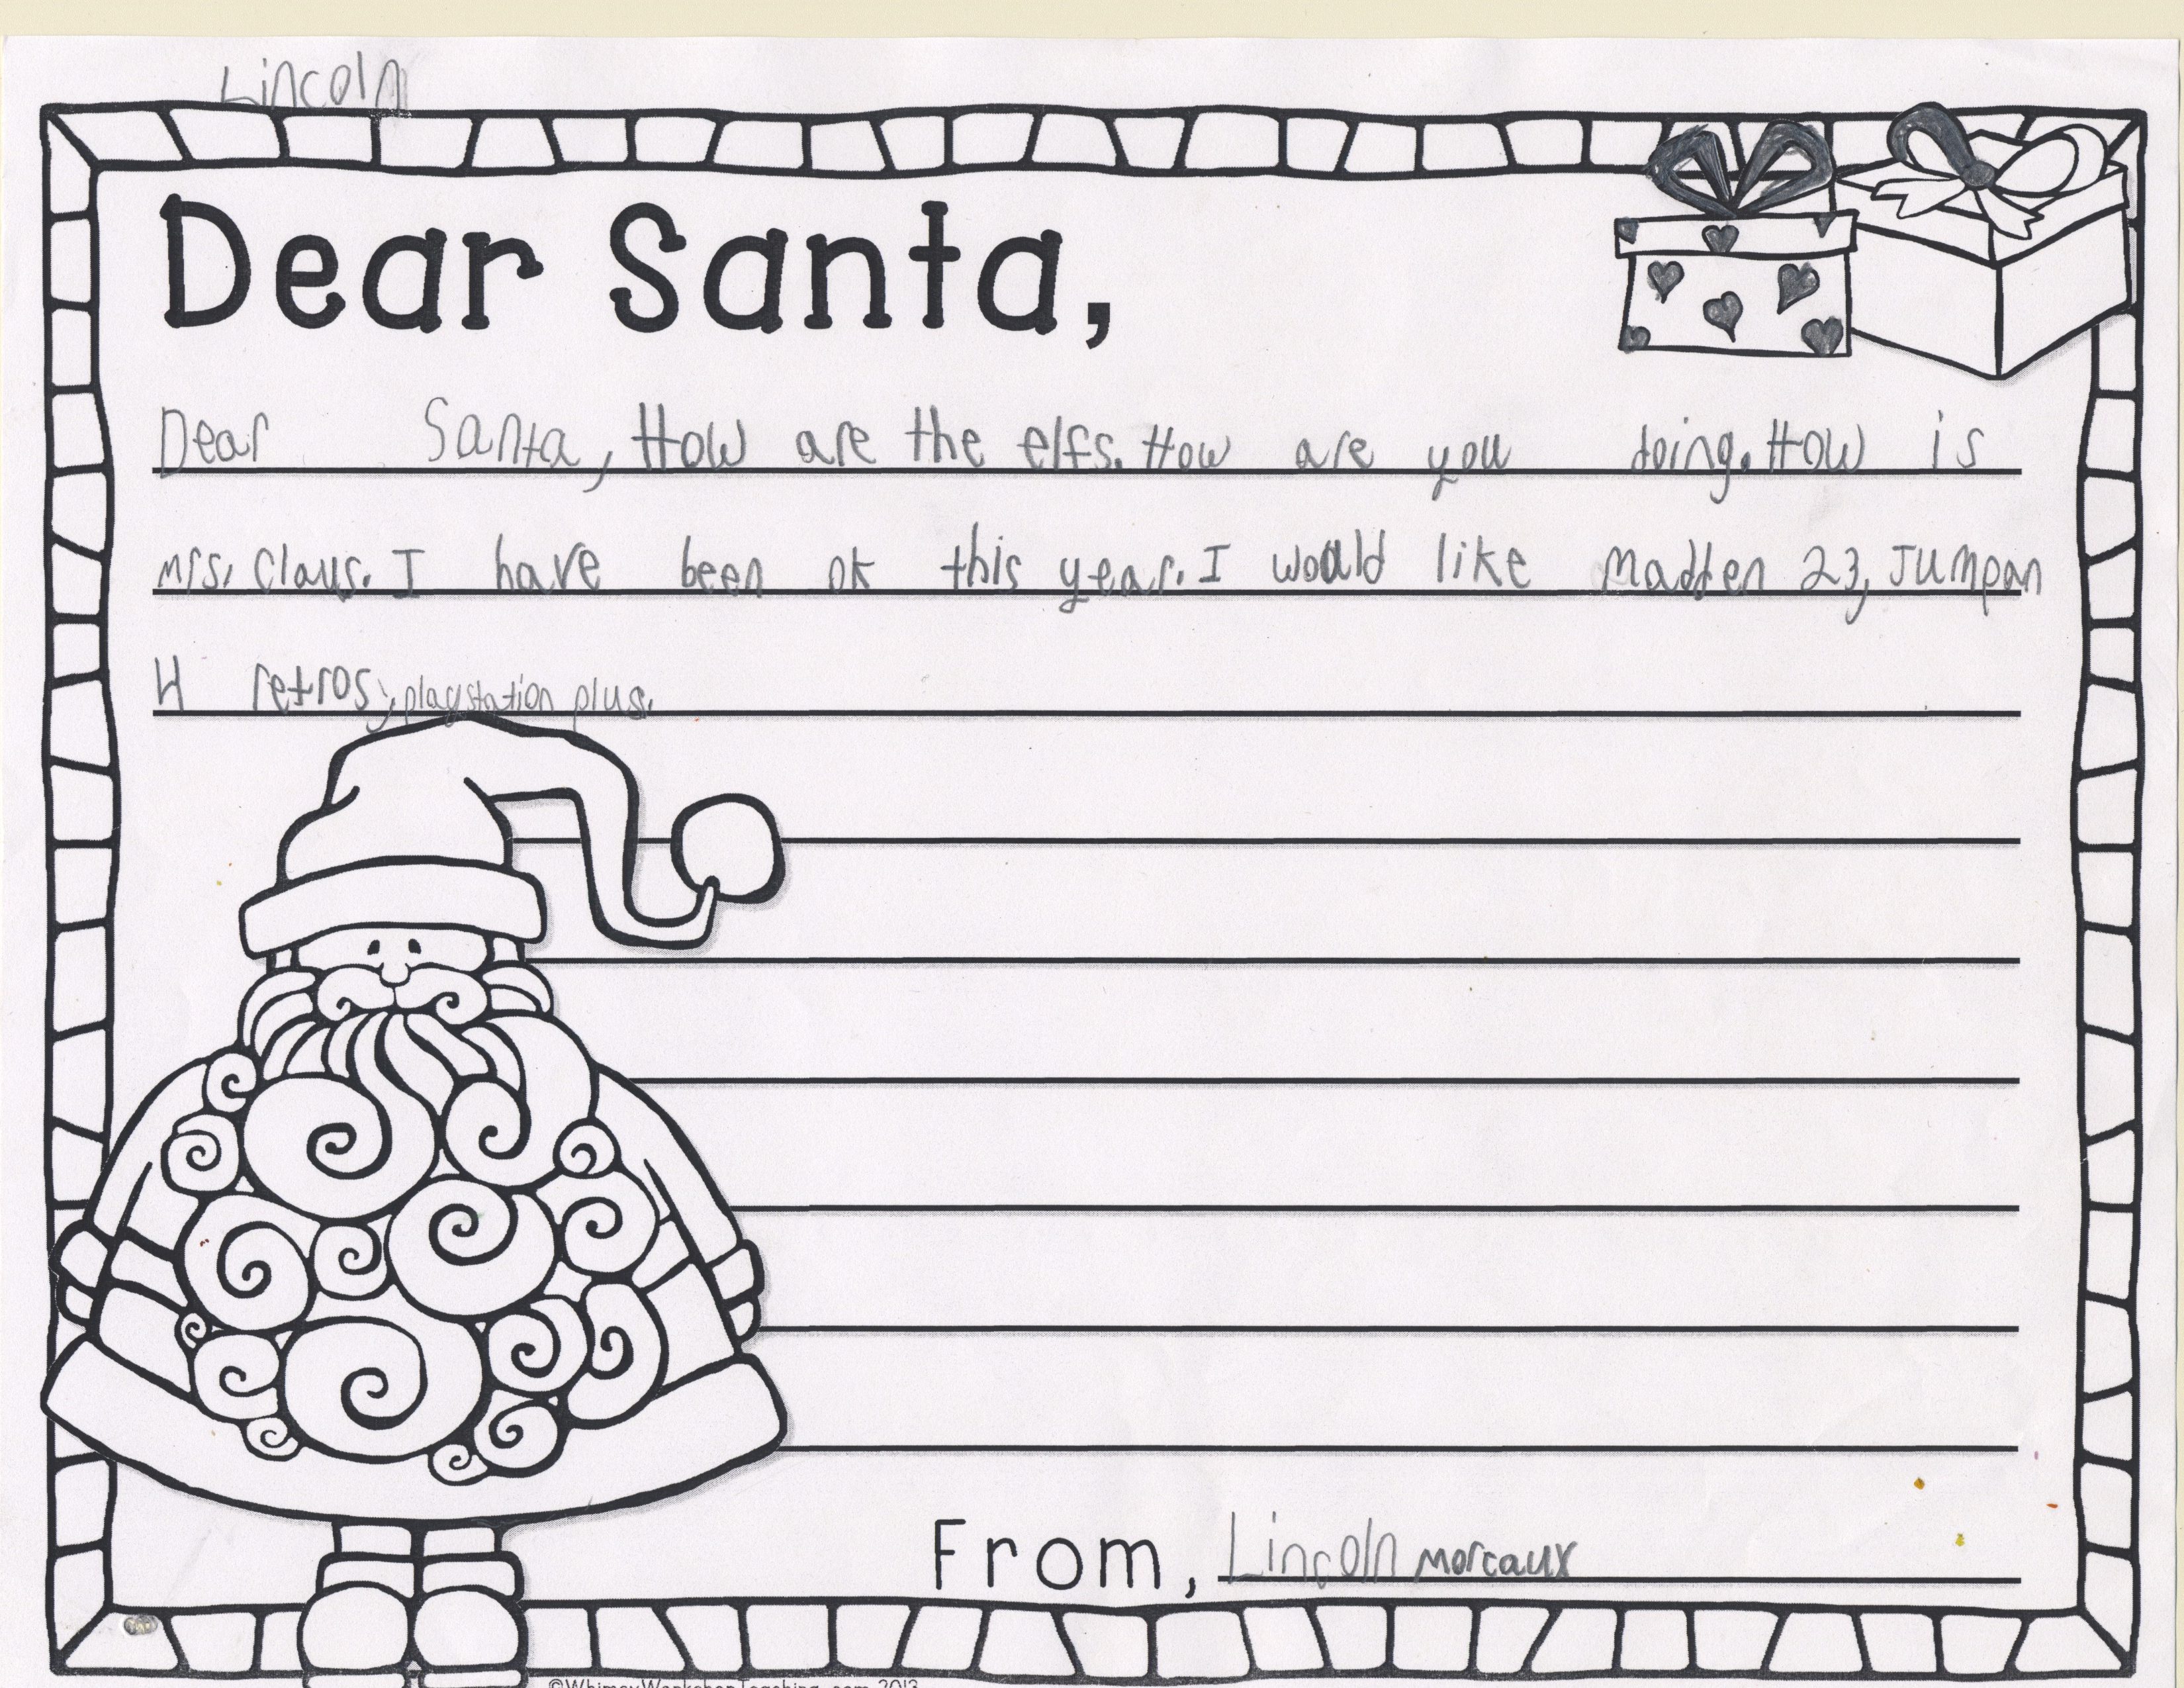 Lincoln
Dear Santa,
Dear Santa, How are the elfs. How are you doing. How is
mrs. Claus. I have been ok this year. I would like madden 23, Jumpan
4 retros, playstation plus.
From, Lincoln morcaux
©WhimsyWorkshopTeaching.com 2013